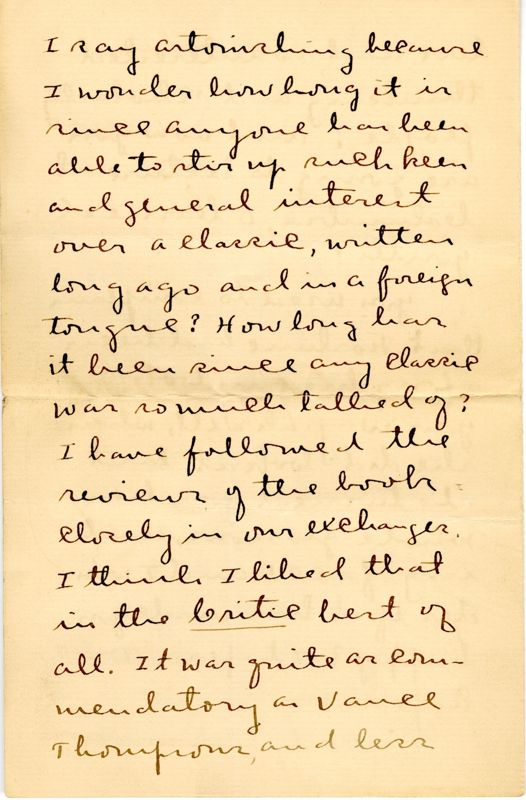 I say astonishing because
I wonder how long it is
since anyone has been
able to stir up such keen
and general interest
over a classic, written
long ago and in a foreign
tongue? How long has
it been since any classic
was so much talked of?
I have followed the
reviews of the book
closely in our exchanges.
I think I liked that
in the Critic best of
all. It was quite as com-
mendatory as Vance
Thompsons, and less